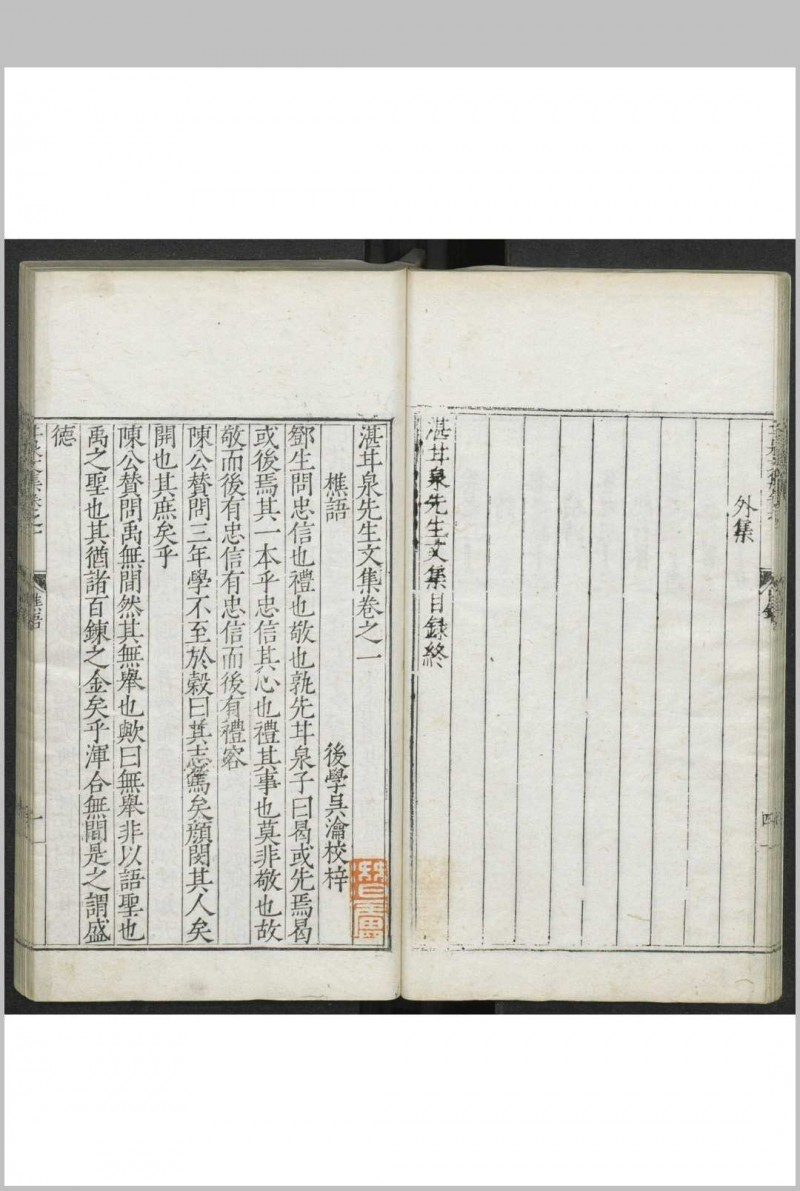 外集
湛甘泉先生文集目録終
湛甘泉先生文集卷之一
樵語
後學吳瀹校梓
鄧生問忠信也禮也敬也孰先甘泉子曰曷或先焉曷
或後焉其一本乎忠信其心也禮其事也莫非敬也故
敬而後有忠信有忠信而後有禮容
陳公賛問三年學不至於穀曰其志篤矣顔閔其人矣
開也其庶矣乎
陳公賛問禹無間然其無舉也歟曰無舉非以語聖也
禹之聖也其猶諸百鍊之金矣乎渾合無間是之謂盛
德
樵語
一